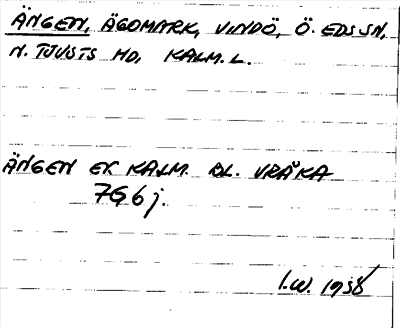 ÄNGEN, ÄGOMARK, VINDÖ, Ö. EDS SN,
N. TJUSTS HD, KALM. L.
ÄNGEN EK KALM. BL. VRÅKA
7G6j.
I.W. 1958